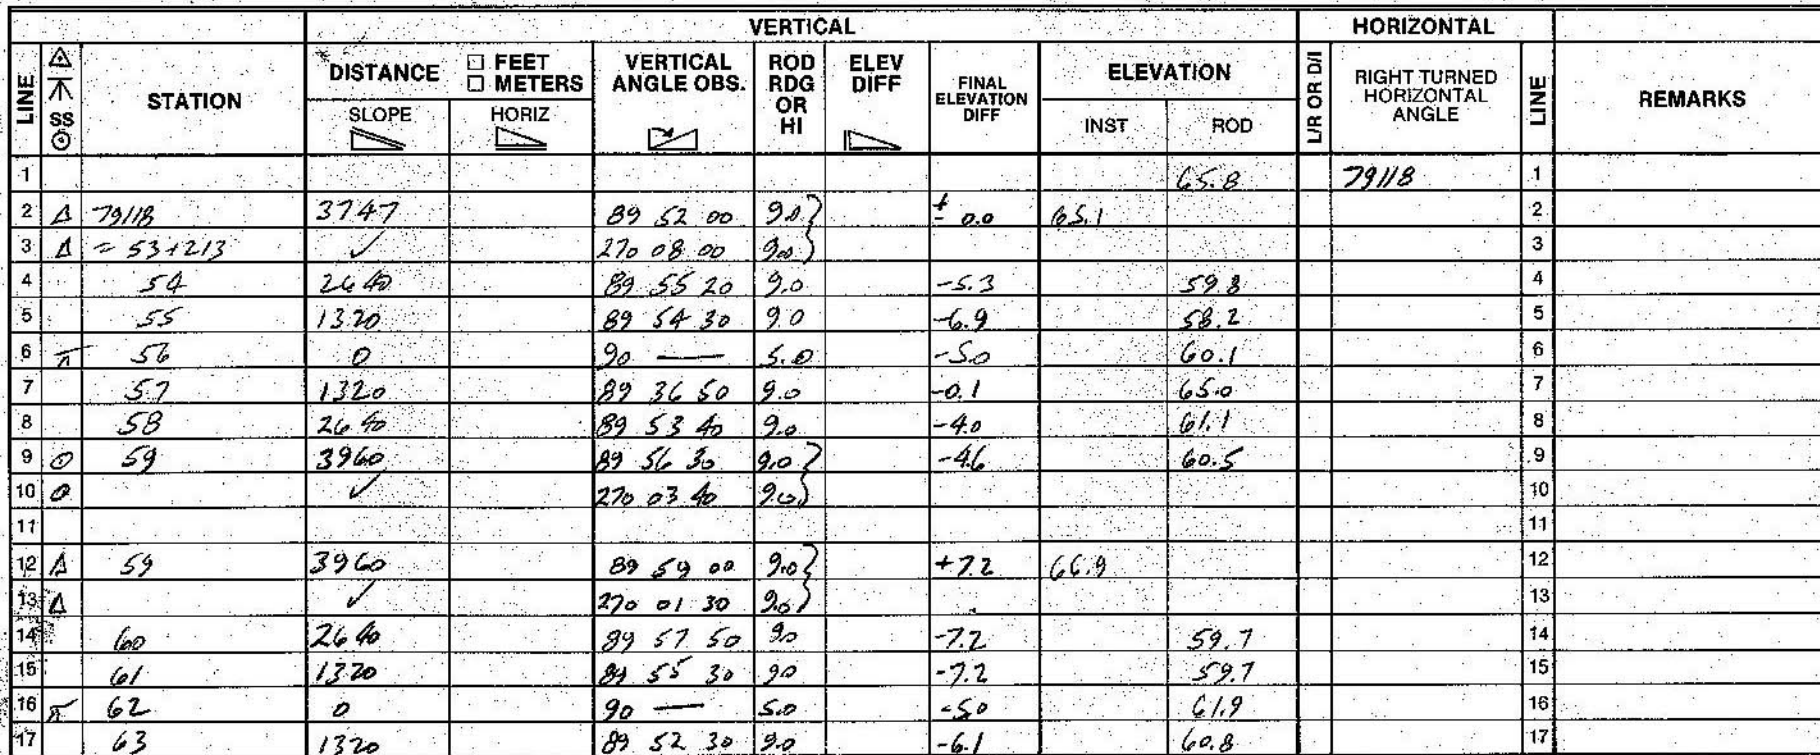 VERTICAL HORIZONTAL
LINE SS STATION DISTANCE □ FEET □ METERS SLOPE HORIZ VERTICAL ANGLE OBS. ROD RDG OR HI ELEV DIFF FINAL ELEVATION DIFF ELEVATION INST ROD L/R OR D/I RIGHT TURNED HORIZONTAL ANGLE LINE REMARKS
1 65.8 79118 1
2 Δ 79118 3747 89 52 00 9.0 ± 0.0 65.1 2
3 Δ = 53+213 ✓ 270 08 00 9.0 3
4 54 2640 89 55 20 9.0 -5.3 59.8 4
5 55 1320 89 54 30 9.0 -6.9 58.2 5
6 ⊼ 56 0 90 — 5.0 -5.0 60.1 6
7 57 1320 89 36 50 9.0 -0.1 65.0 7
8 58 2640 89 53 40 9.0 -4.0 61.1 8
9 ⊙ 59 3960 89 56 30 9.0 -4.6 60.5 9
10 ⊙ ✓ 270 03 40 9.0 10
11 11
12 Δ 59 3960 89 59 00 9.0 +7.2 66.9 12
13 Δ ✓ 270 01 30 9.0 13
14 60 2640 89 57 50 9.0 -7.2 59.7 14
15 61 1320 89 55 30 9.0 -7.2 59.7 15
16 ⊼ 62 0 90 — 5.0 -5.0 61.9 16
17 63 1320 89 52 30 9.0 -6.1 60.8 17